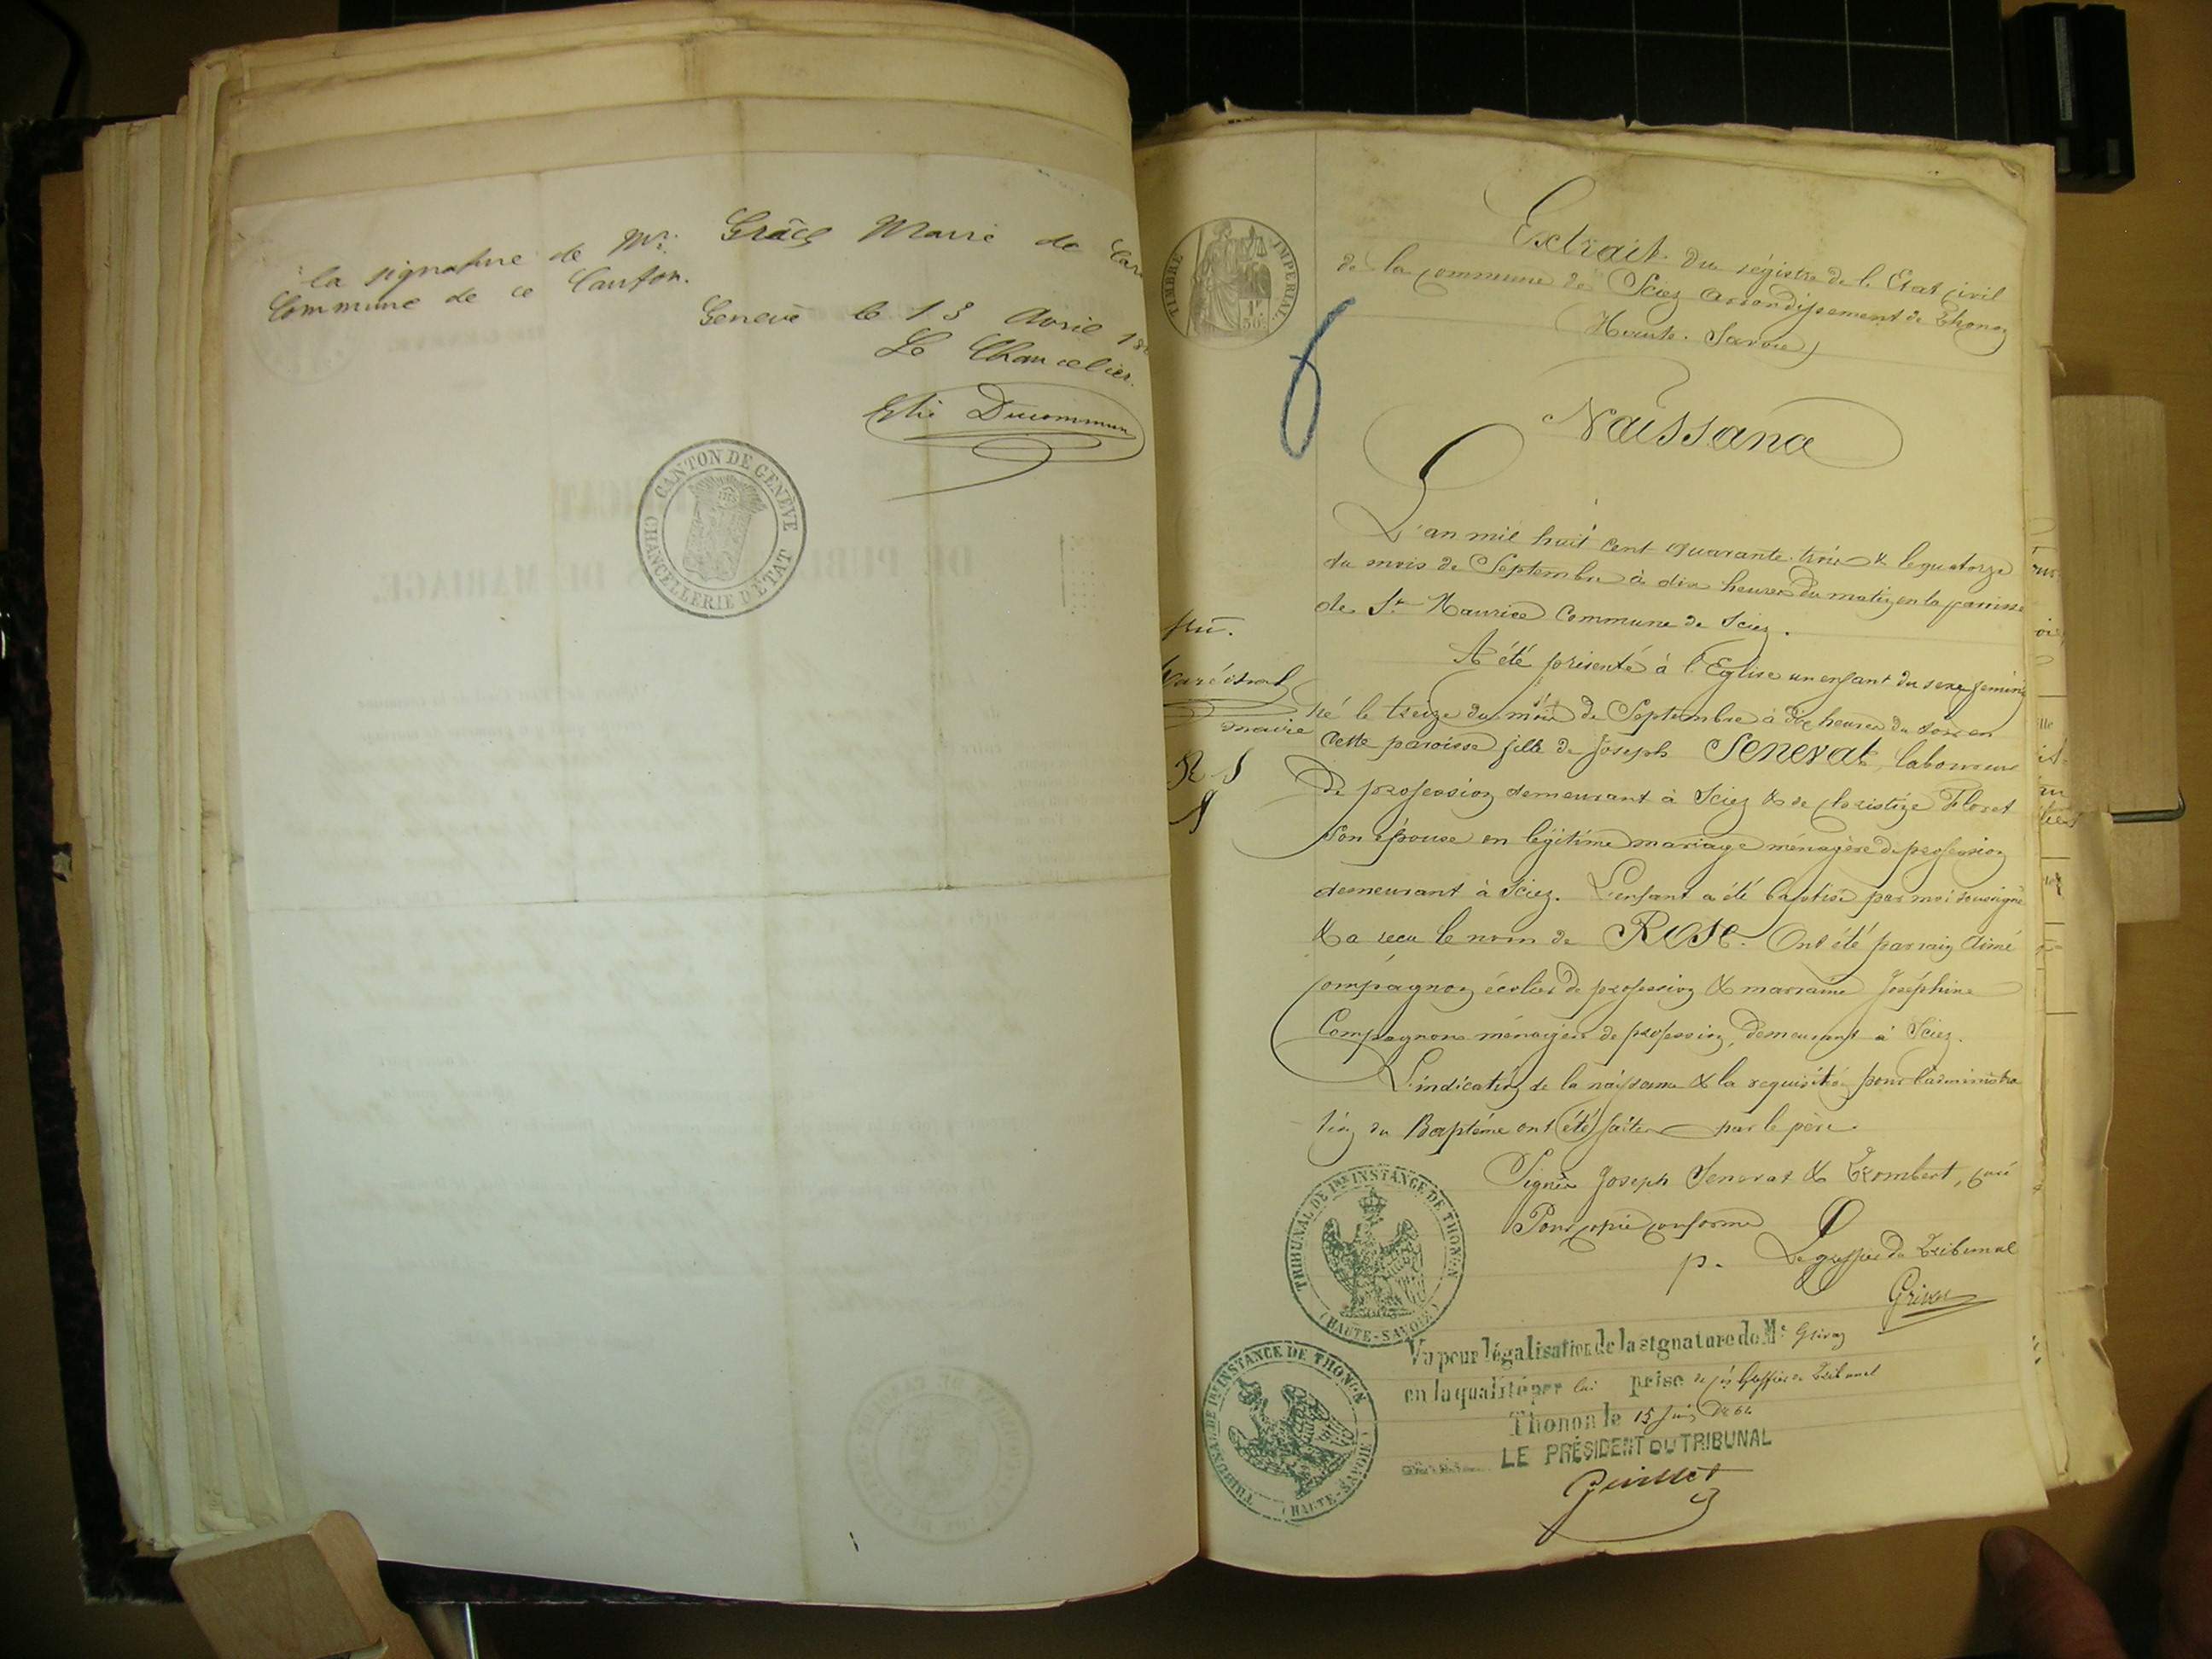 la signature de Mr. Maire de
Commune de ce Canton.
Genève le 13 Avril
Le Chancelier.
Elie Ducommun
CANTON DE GENÈVE
CHANCELLERIE D'ÉTAT
TIMBRE IMPERIAL
1F.
50c.
Extrait du régistre de l'Etat civil
de la commune de Sciez arrondissement de Thonon
(Haute-Savoie)
Naissance
L'an mil huit cent quarante-trois & le quatorze
du mois de Septembre à dix heures du matin en la paroisse
de St Maurice Commune de Sciez.
A été présenté à l'Eglise un enfant du sexe féminin
né le treize du mois de Septembre à dix heures du soir en
cette paroisse fille de Joseph Senevat, laboureur
de profession demeurant à Sciez & de Christine Floret
son épouse en légitime mariage ménagère de profession
demeurant à Sciez. L'enfant a été baptisé par moi soussigné
& a reçu le nom de Rose. Ont été parrain Aimé
Compagnon écolier de profession & marraine Joséphine
Compagnon ménagère de profession, demeurant à Sciez.
L'indication de la naissance & la requisition pour l'administra
tion du Baptême ont été faites par le père.
Signés Joseph Senevat & Trombert, curé
Pour copie conforme
p. Le greffier du Tribunal
maire
TRIBUNAL DE 1RE INSTANCE DE THONON
(HAUTE-SAVOIE)
Vu pour légalisation de la signature de Mr
en la qualité par lui prise de Greffier du Tribunal
Thonon le 15 Juin 1864
LE PRÉSIDENT DU TRIBUNAL
TRIBUNAL DE 1RE INSTANCE DE THONON
(HAUTE-SAVOIE)